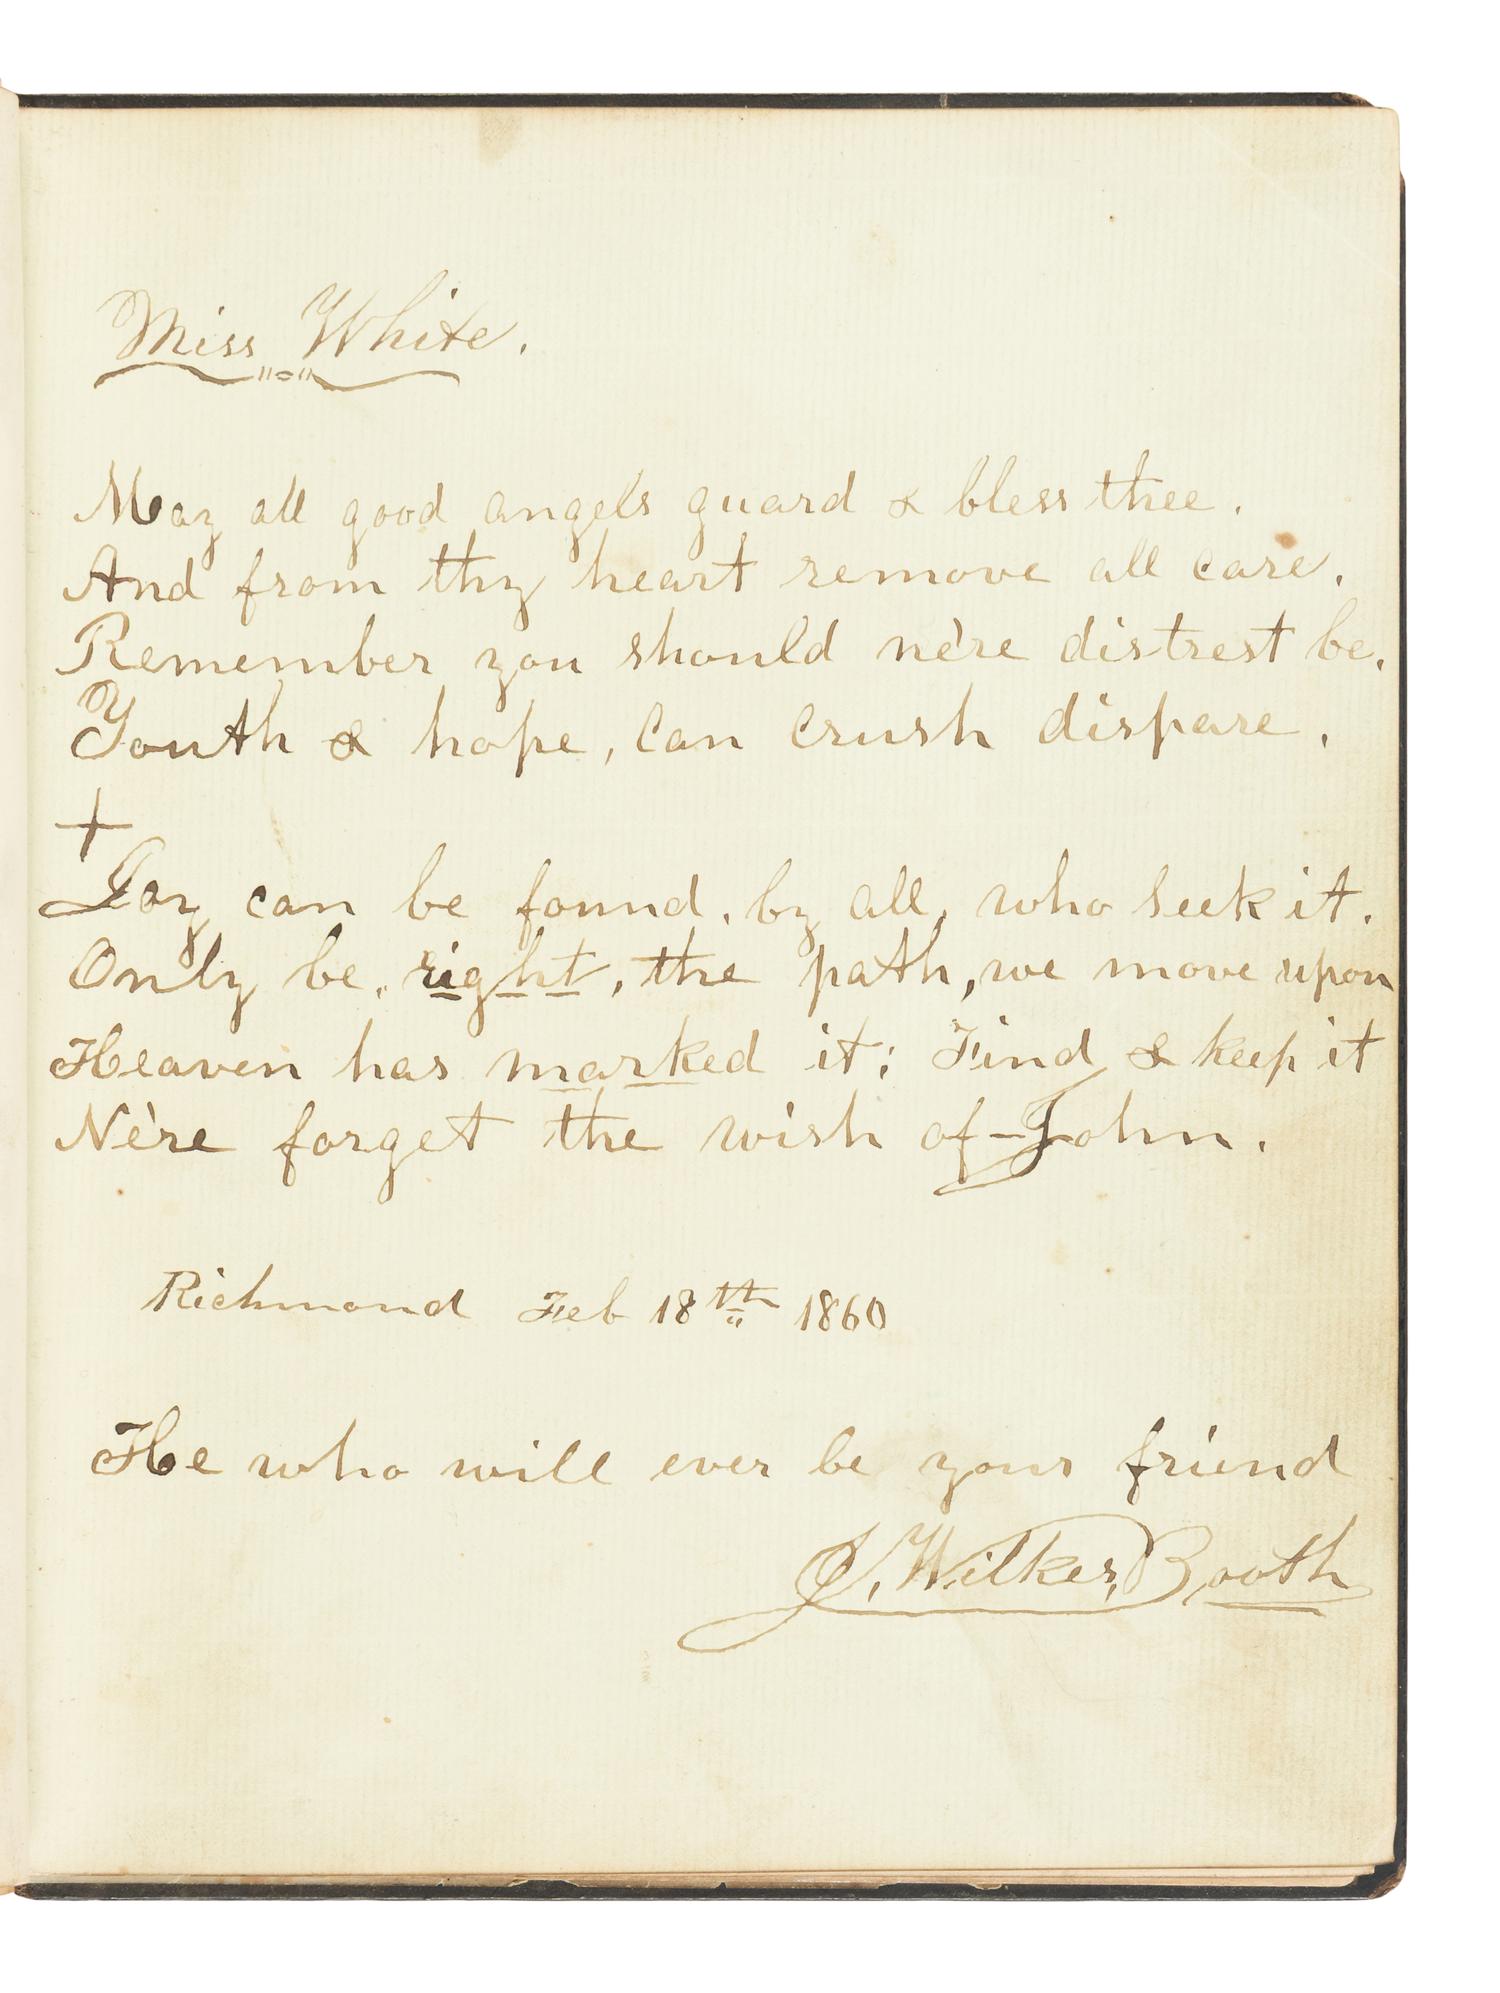 Miss White.
May all good angels guard & bless thee.
And from thy heart remove all care.
Remember you should ne're distrest be.
Youth & hope, can crush dispare.
+
Joy can be found, by all, who seek it.
Only be, right, the path, we move upon
Heaven has marked it; Find & keep it
Ne're forget the wish of - John.
Richmond Feb 18th 1860
He who will ever be your friend
J. Wilkes Booth